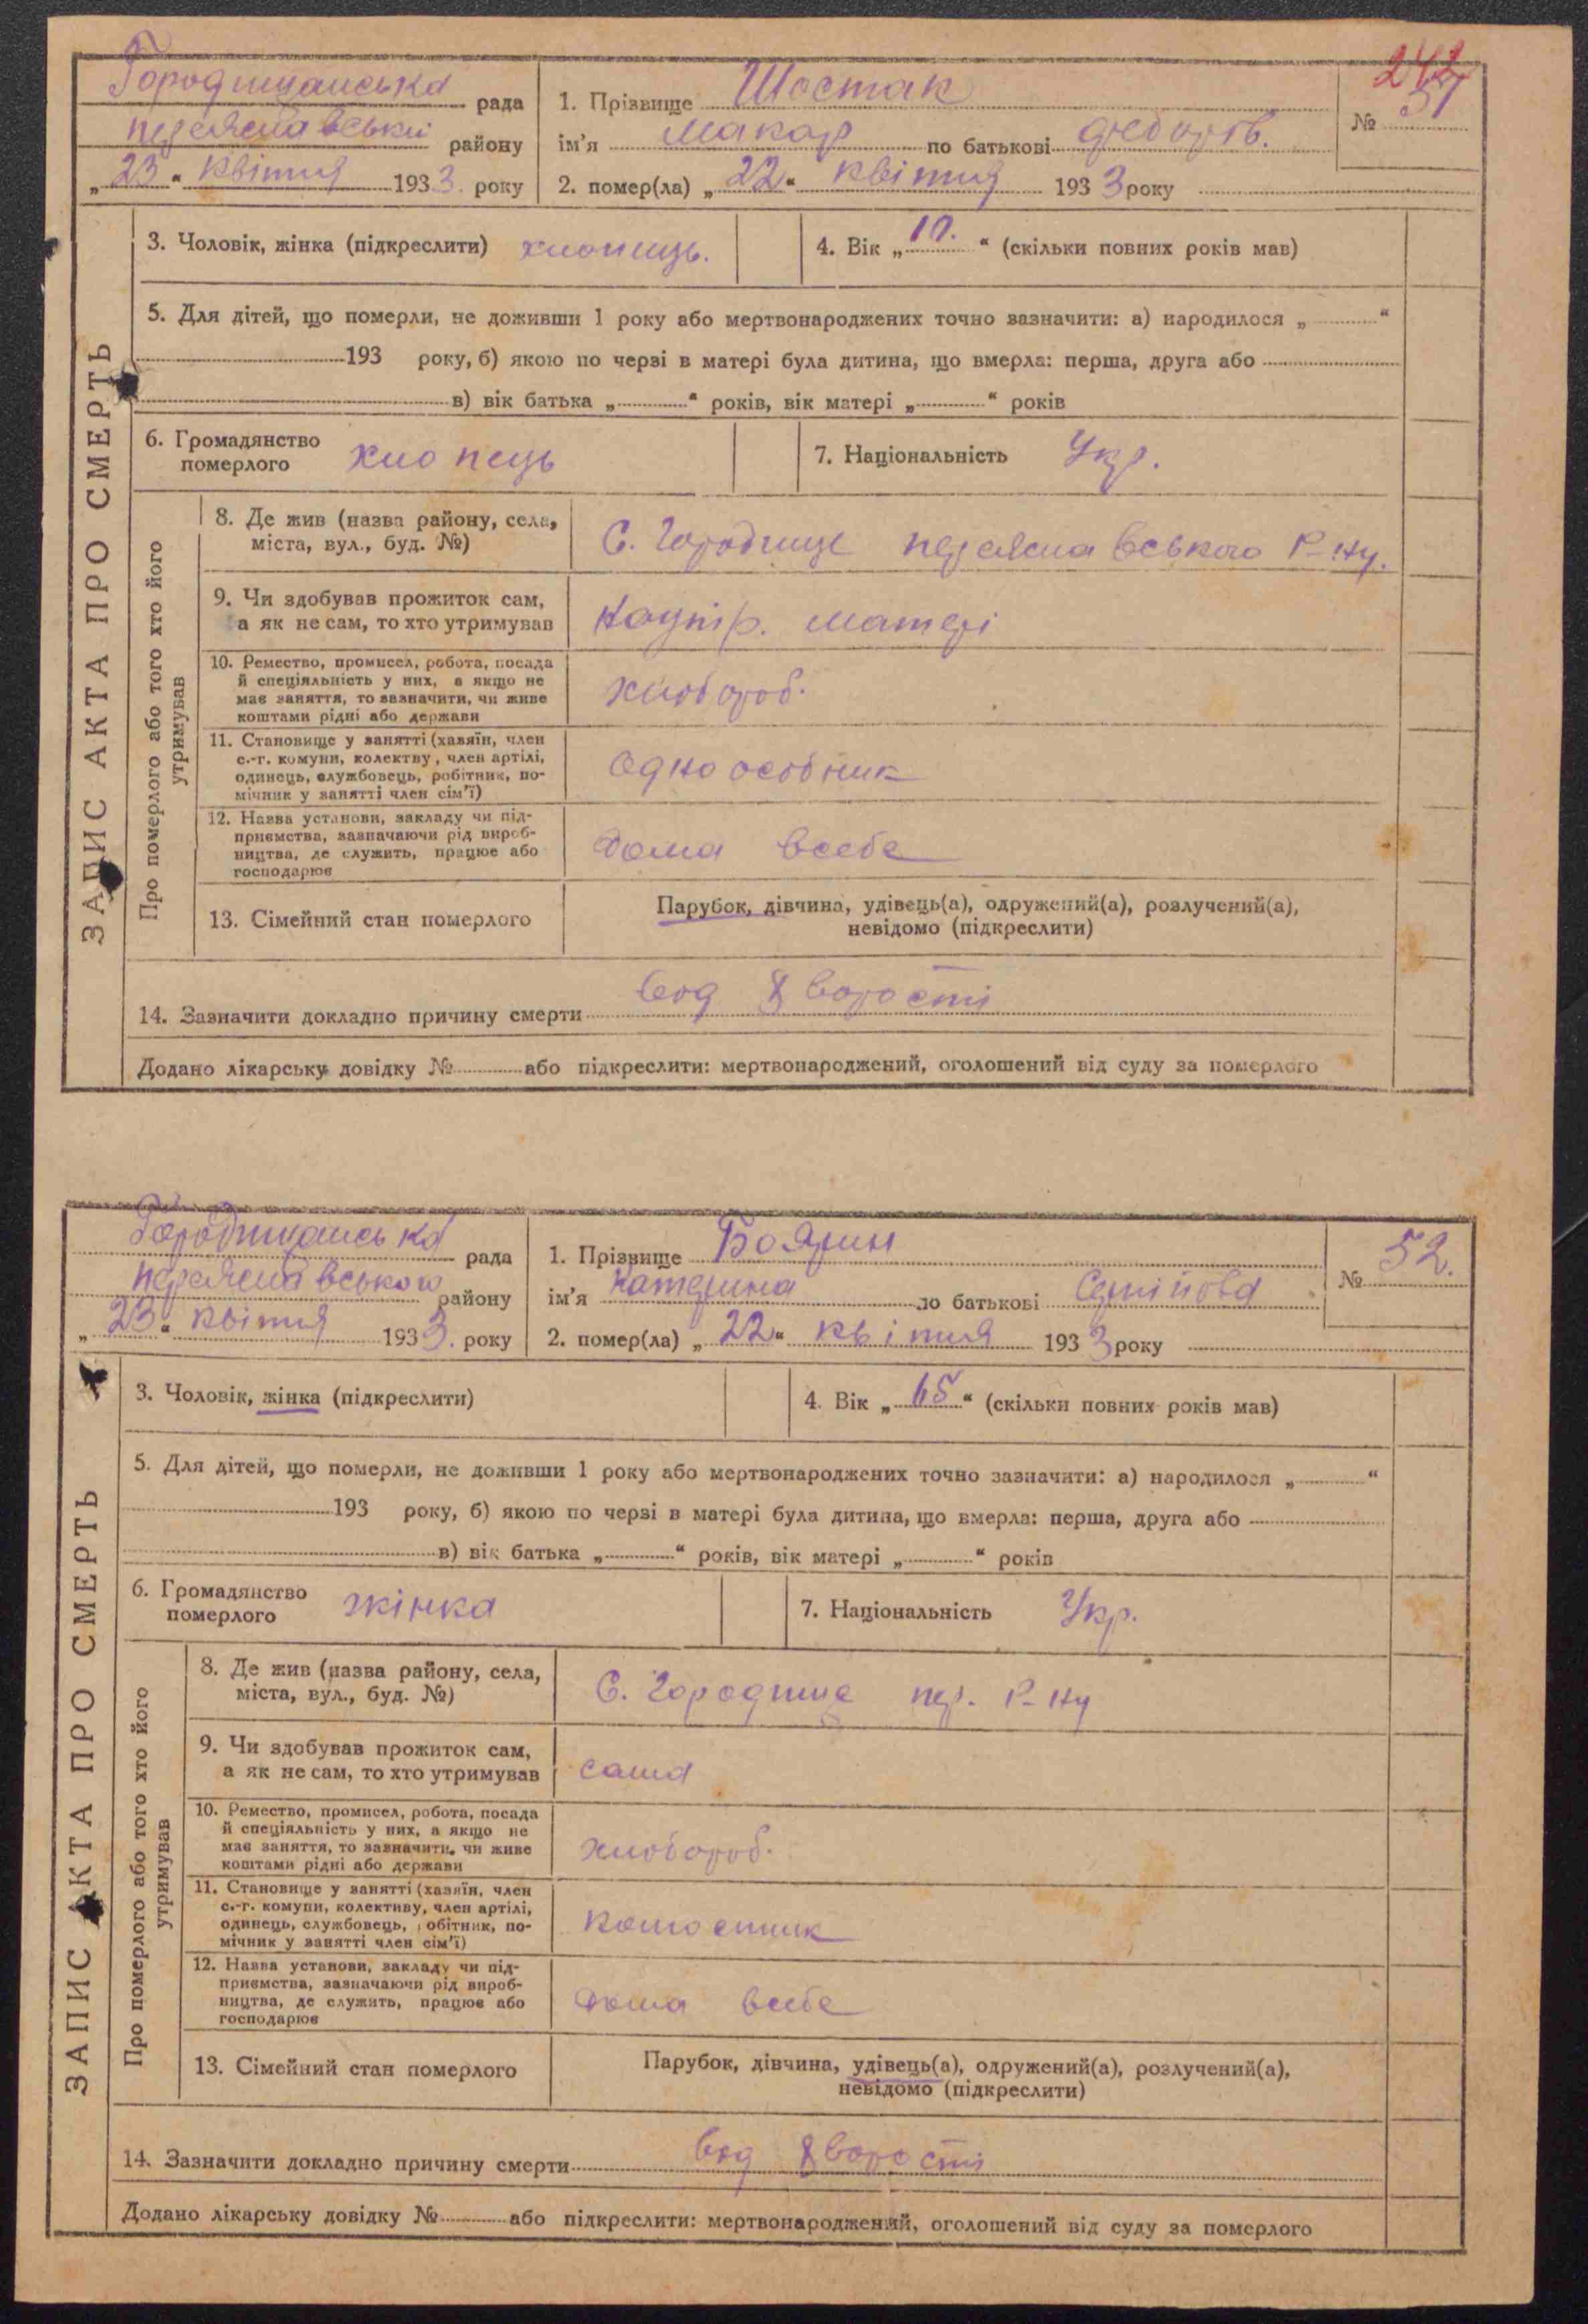 242
Городищанська рада
переяславський району
„23“ квітня 1933. року
1. Прізвище Шостак
ім'я Макар по батькові
2. помер(ла) „22“ квітня 1933 року
№ 51
ЗАПИС АКТА ПРО СМЕРТЬ
3. Чоловік, жінка (підкреслити) хлопець.
4. Вік „10.“ (скільки повних років мав)
5. Для дітей, що померли, не доживши 1 року або мертвонароджених точно зазначити: а) народилося „ “
193 року, б) якою по черзі в матері була дитина, що вмерла: перша, друга або
в) вік батька „ “ років, вік матері „ “ років
6. Громадянство
померлого хлопець
7. Національність Укр.
Про померлого або того хто його
утримував
8. Де жив (назва району, села,
міста, вул., буд. №)
С. Городище переяславського Р-ну.
9. Чи здобував прожиток сам,
а як не сам, то хто утримував
матері
10. Ремество, промисел, робота, посада
й спеціяльність у них, а якщо не
має заняття, то зазначити, чи живе
коштами рідні або держави
хлібороб.
11. Становище у занятті (хазяїн, член
с.-г. комуни, колектву, член артілі,
одинець, службовець, робітник, по-
мічник у занятті член сім'ї)
одноособник
12. Назва установи, закладу чи під-
приємства, зазначаючи рід вироб-
ництва, де служить, працює або
господарює
дома всебе
13. Сімейний стан померлого
Парубок, дівчина, удівець(а), одружений(а), розлучений(а),
невідомо (підкреслити)
14. Зазначити докладно причину смерти вод хворости
Додано лікарську довідку № або підкреслити: мертвонароджений, оголошений від суду за померлого
Городищанська рада
переяславського району
„23“ квітня 1933. року
1. Прізвище Боярин
ім'я Катерина по батькові
2. помер(ла) „22“ квітня 1933 року
№ 52.
ЗАПИС АКТА ПРО СМЕРТЬ
3. Чоловік, жінка (підкреслити)
4. Вік „65“ (скільки повних років мав)
5. Для дітей, що померли, не доживши 1 року або мертвонароджених точно зазначити: а) народилося „ “
193 року, б) якою по черзі в матері була дитина, що вмерла: перша, друга або
в) вік батька „ “ років, вік матері „ “ років
6. Громадянство
померлого жінка
7. Національність Укр.
Про померлого або того хто його
утримував
8. Де жив (назва району, села,
міста, вул., буд. №)
С. Городище пер. Р-ну
9. Чи здобував прожиток сам,
а як не сам, то хто утримував
сама
10. Ремество, промисел, робота, посада
й спеціяльність у них, а якщо не
має заняття, то зазначити, чи живе
коштами рідні або держави
хлібороб.
11. Становище у занятті (хазяїн, член
с.-г. комуни, колективу, член артілі,
одинець, службовець, робітник, по-
мічник у занятті член сім'ї)
12. Назва установи, закладу чи під-
приємства, зазначаючи рід вироб-
ництва, де служить, працює або
господарює
дома всебе
13. Сімейний стан померлого
Парубок, дівчина, удівець(а), одружений(а), розлучений(а),
невідомо (підкреслити)
14. Зазначити докладно причину смерти вод хворости
Додано лікарську довідку № або підкреслити: мертвонароджений, оголошений від суду за померлого